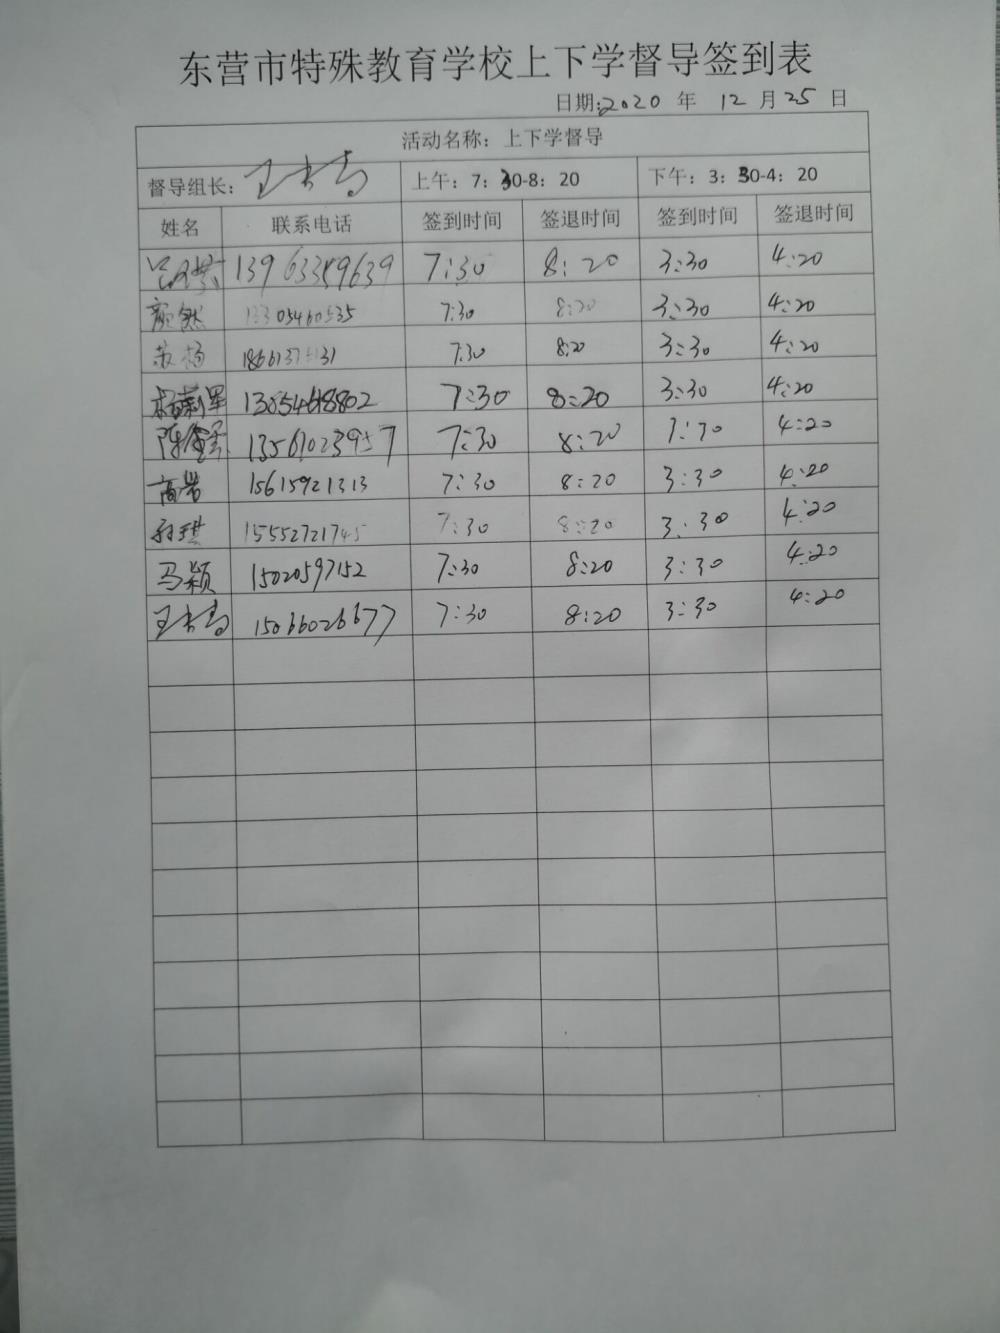 东营市特殊教育学校上下学督导签到表
日期:2020 年 12 月 25 日
活动名称：上下学督导
督导组长： 上午：7：30-8：20 下午：3：30-4：20
姓名 联系电话 签到时间 签退时间 签到时间 签退时间
13963359639 7:30 8:20 3:30 4:20
颜然 7:30 8:20 3:30 4:20
苏杨 7:30 8:20 3:30 4:20
杨莉军 7:30 8:20 3:30 4:20
13561023957 7:30 8:20 3:30 4:20
高岩 15615921313 7:30 8:20 3:30 4:20
孙琪 15552721745 7:30 8:20 3:30 4:20
马颖 15020597152 7:30 8:20 3:30 4:20
15066026677 7:30 8:20 3:30 4:20